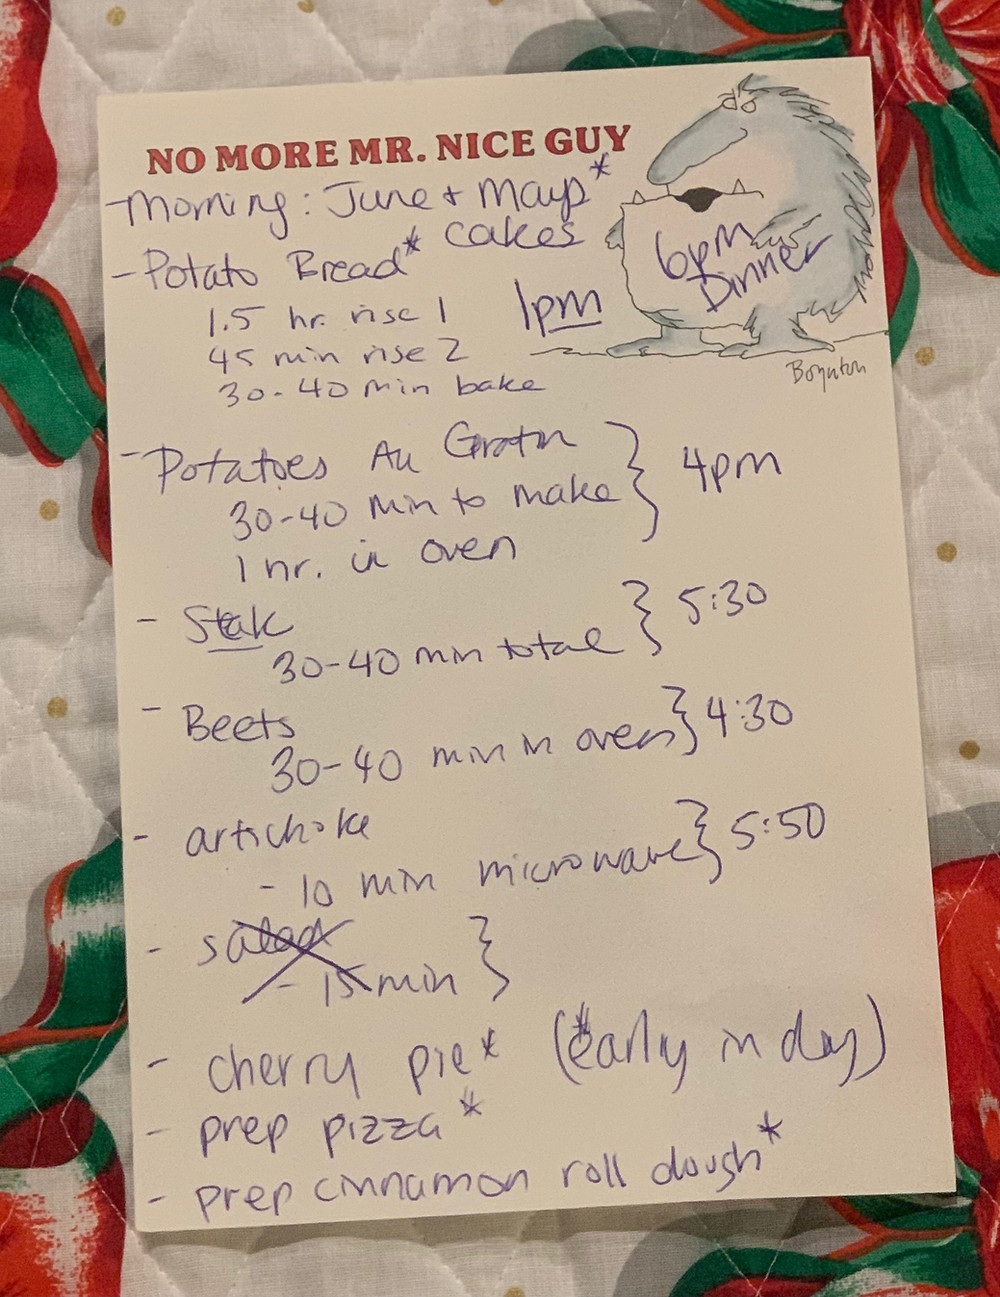 NO MORE MR. NICE GUY
- Morning: June + Mays*
cakes
- Potato Bread*
1.5 hr. rise 1
45 min rise 2
30-40 min bake
1pm
6pm
Dinner
Boynton
- Potatoes Au Gratin
30-40 min to make
1 hr. in oven
4pm
- Steak
30-40 min total
5:30
- Beets
30-40 min in oven
4:30
- artichoke
- 10 min microwave
5:50
- salad
- 15 min
- cherry pie* (*early in day)
- prep pizza*
- prep cinnamon roll dough*